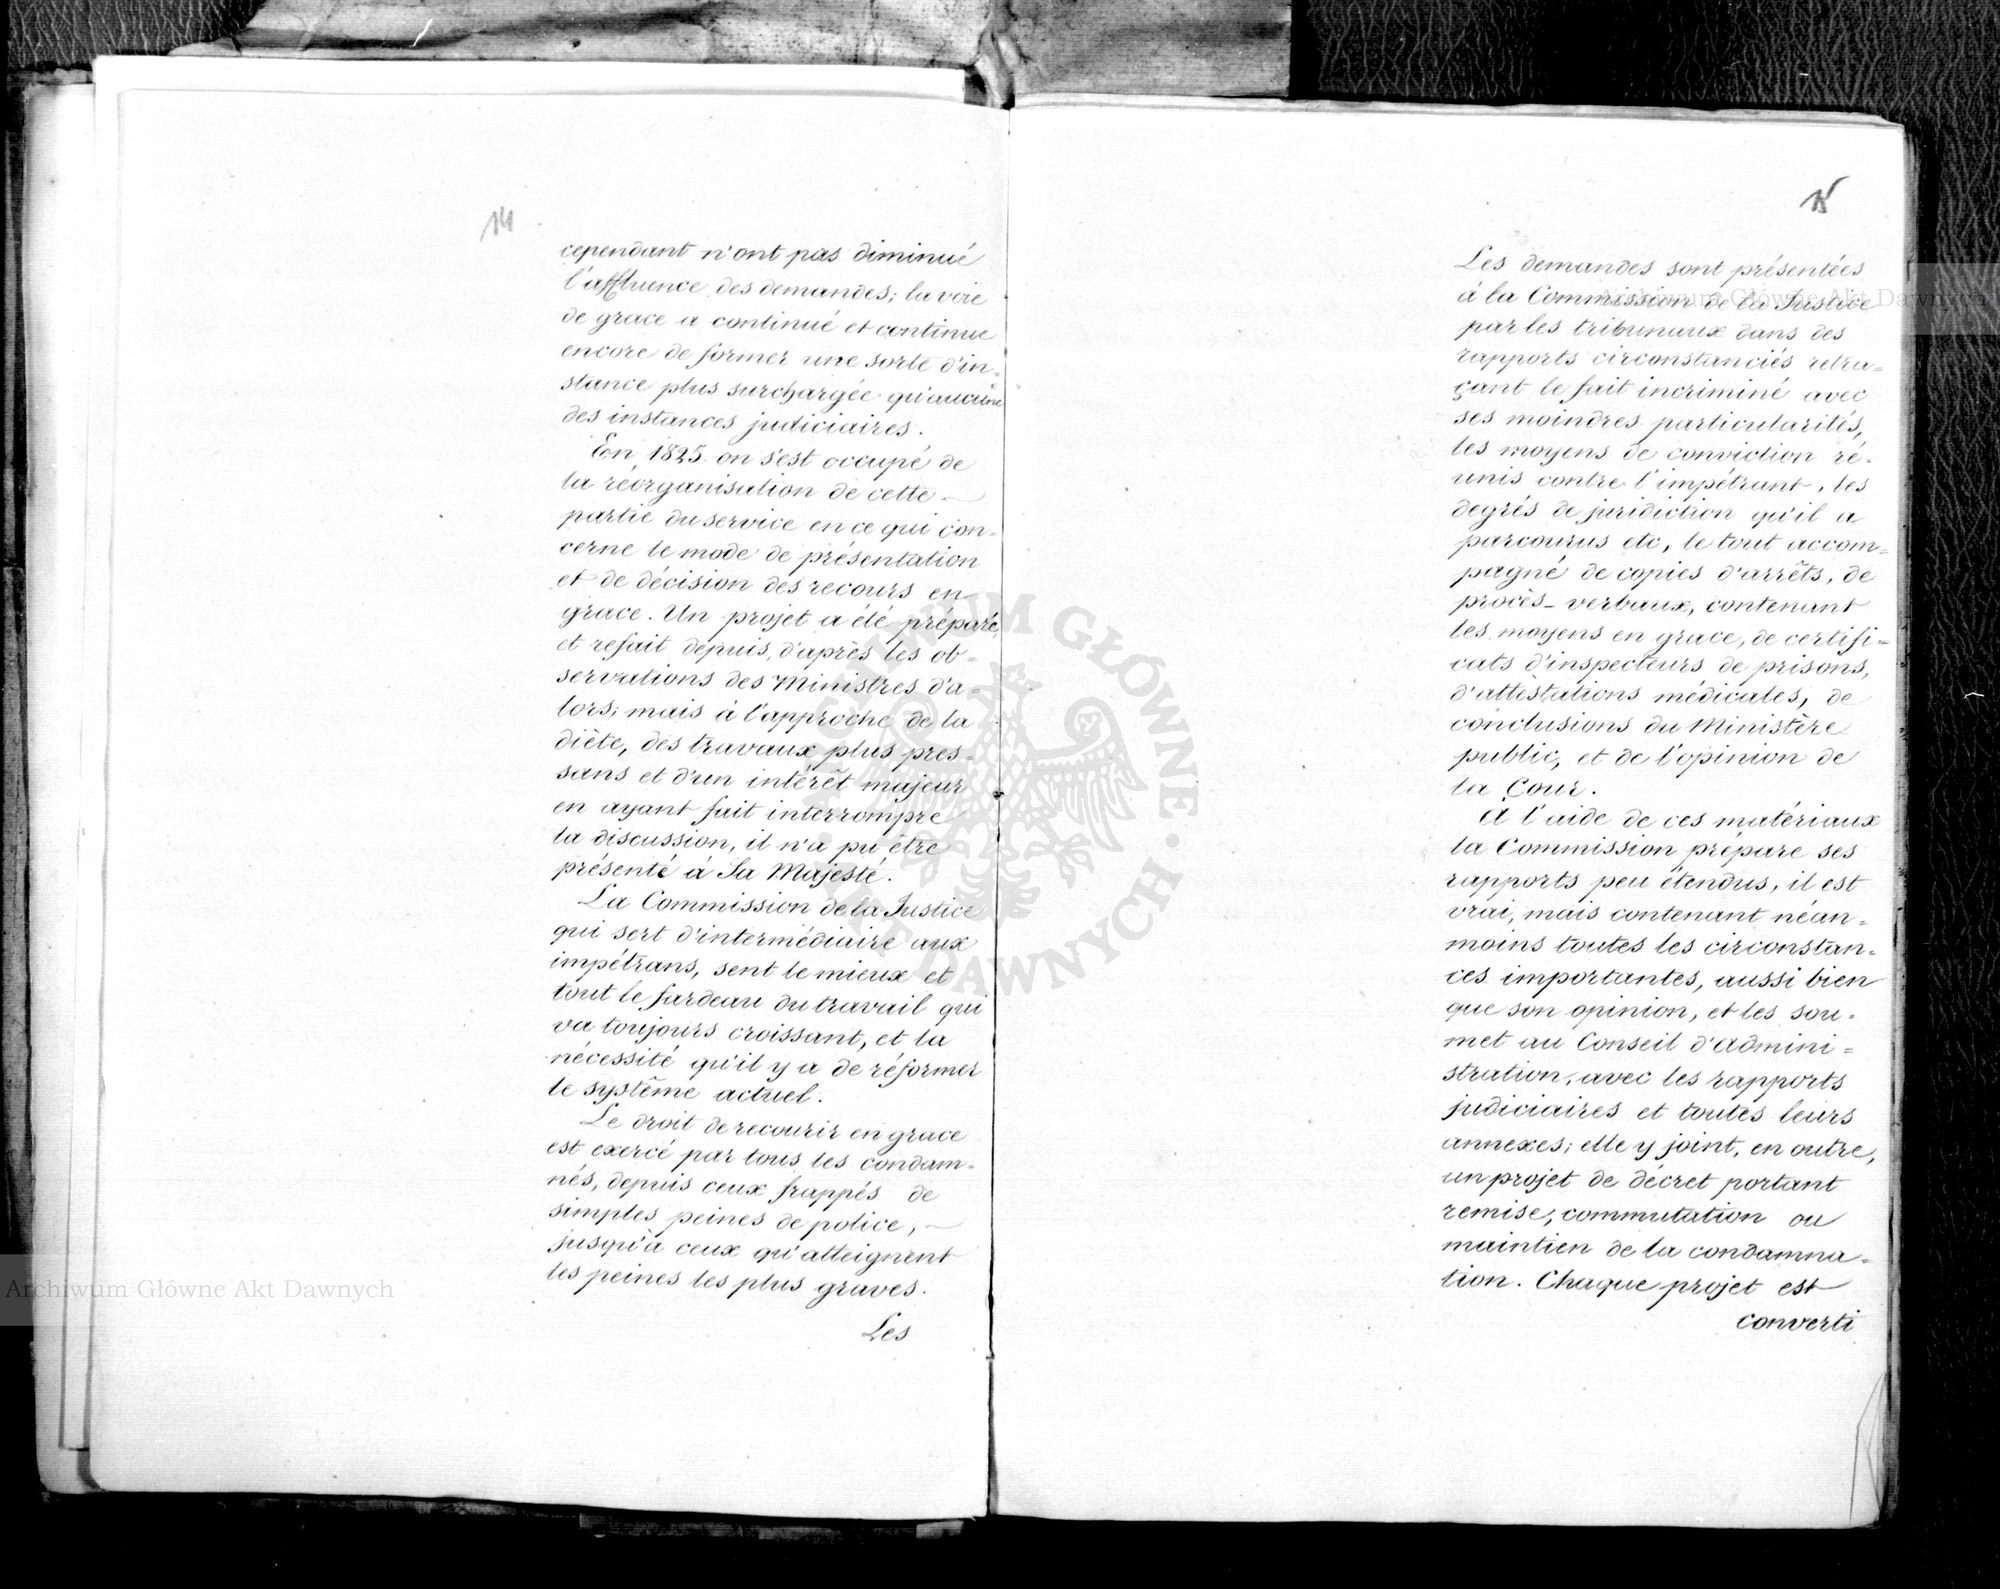 14
cependant n'ont pas diminué
l'affluence des demandes; la voie
de grace a continué et continue
encore de former une sorte d'in=
stance plus surchargée qu'aucune
des instances judiciaires.
En 1825 on s'est occupé de
la réorganisation de cette
partie du service en ce qui con=
cerne le mode de présentation
et de décision des recours en
grace. Un projet a été préparé,
et refait depuis, d'après les ob=
servations des Ministres d'a=
lors; mais à l'approche de la
diète, des travaux plus pres=
sans et d'un intérêt majeur
en ayant fait interrompre
la discussion, il n'a pu être
présenté à Sa Majesté.
La Commission de la Justice
qui sert d'intermédiaire aux
impétrans, sent le mieux et
tout le fardeau du travail qui
va toujours croissant, et la
nécessité qu'il y a de réformer
le système actuel.
Le droit de recourir en grace
est exercé par tous les condam=
nés, depuis ceux frappés de
simples peines de police,
jusqu'à ceux qu'atteignent
les peines les plus graves.
Les
15
Les demandes sont présentées
à la Commission de la Justice
par les tribunaux dans des
rapports circonstanciés retra=
çant le fait incriminé avec
ses moindres particularités,
les moyens de conviction ré=
unis contre l'impétrant, les
degrés de juridiction qu'il a
parcourus etc, le tout accom=
pagné de copies d'arrêts, de
procès-verbaux, contenant
les moyens en grace, de certifi=
cats d'inspecteurs de prisons,
d'attestations médicales, de
conclusions du Ministère
public, et de l'opinion de
la Cour.
A l'aide de ces matériaux
la Commission prépare ses
rapports peu étendus, il est
vrai, mais contenant néan=
moins toutes les circonstan=
ces importantes, aussi bien
que son opinion, et les sou=
met au Conseil d'Admini=
stration, avec les rapports
judiciaires et toutes leurs
annexes; elle y joint, en outre,
un projet de décret portant
remise, commutation ou
maintien de la condamna=
tion. Chaque projet est
converti
Archiwum Główne Akt Dawnych
Archiwum Główne Akt Dawnych
ARCHIWUM GŁÓWNE · AKT DAWNYCH ·